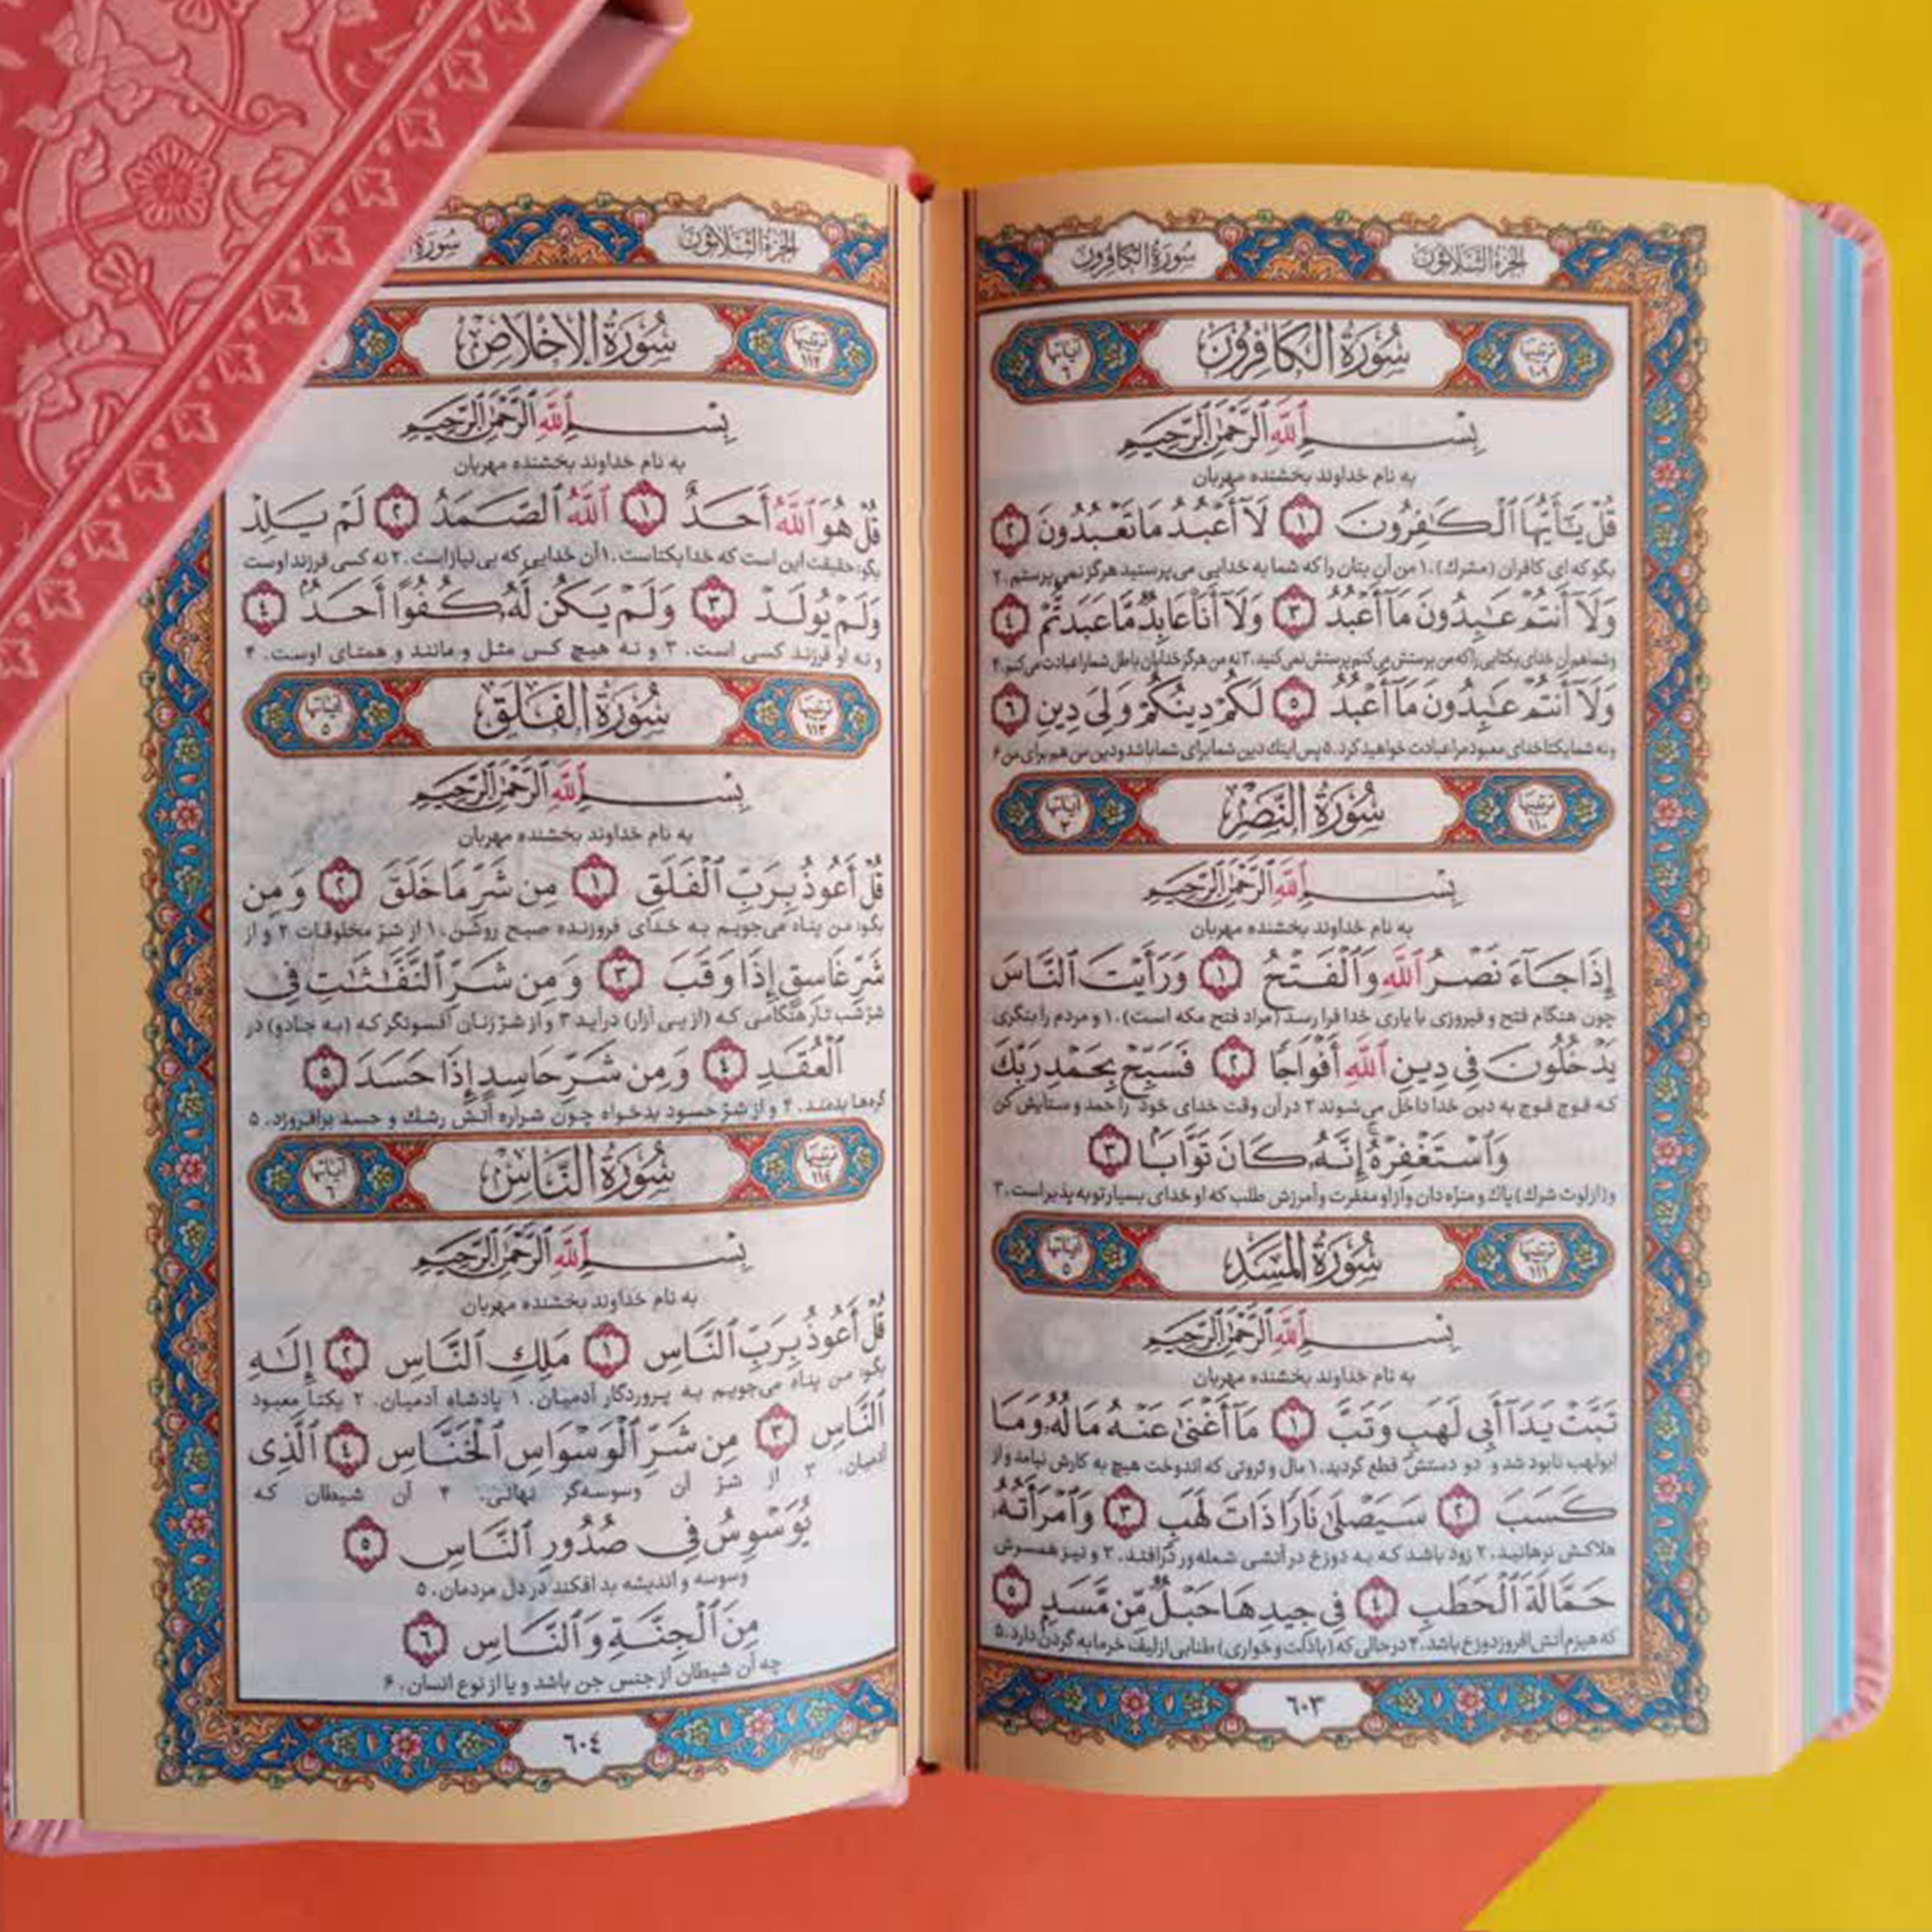 الجزء الثلاثون
سورة الكافرون
ترتيبها ١٠٩
سُورَةُ الكَافِرُونَ
آياتها ٦
بِسْمِ ٱللَّهِ ٱلرَّحْمَٰنِ ٱلرَّحِيمِ
به نام خداوند بخشنده مهربان
قُلْ يَٰٓأَيُّهَا ٱلْكَٰفِرُونَ ١ لَآ أَعْبُدُ مَا تَعْبُدُونَ ٢
بگو که ای کافران (مشرك)،۱ من آن بتان را که شما به خدایی می‌پرستید هرگز نمی‌پرستم.۲
وَلَآ أَنتُمْ عَٰبِدُونَ مَآ أَعْبُدُ ٣ وَلَآ أَنَا۠ عَابِدٌ مَّا عَبَدتُّمْ ٤
وشما هم آن خدای یکتایی راکه من پرستش می‌کنم پرستش نمی‌کنید،۳ نه من هرگز خدایان باطل شمارا عبادت می‌کنم،۴
وَلَآ أَنتُمْ عَٰبِدُونَ مَآ أَعْبُدُ ٥ لَكُمْ دِينُكُمْ وَلِىَ دِينِ ٦
ونه شما یکتا خدای معبود مرا عبادت خواهید کرد،۵ پس اینك دین شما برای شما باشد ودین من هم برای من ۶
ترتيبها ١١٠
سُورَةُ النَّصْرِ
آياتها ٣
بِسْمِ ٱللَّهِ ٱلرَّحْمَٰنِ ٱلرَّحِيمِ
به نام خداوند بخشنده مهربان
إِذَا جَآءَ نَصْرُ ٱللَّهِ وَٱلْفَتْحُ ١ وَرَأَيْتَ ٱلنَّاسَ
چون هنگام فتح و فیروزی با یاری خدا فرا رسد (مراد فتح مکه است)،۱ و مردم را بنگری
يَدْخُلُونَ فِى دِينِ ٱللَّهِ أَفْوَاجًا ٢ فَسَبِّحْ بِحَمْدِ رَبِّكَ
که فوج فوج به دین خدا داخل می‌شوند۲ در آن وقت خدای خود را حمد و ستایش کن
وَٱسْتَغْفِرْهُ إِنَّهُۥ كَانَ تَوَّابًۢا ٣
و(ازلوث شرك) پاك و منزّه دان و از او مغفرت و آمرزش طلب که او خدای بسیار توبه پذیر است،۳
ترتيبها ١١١
سُورَةُ المَسَدِ
آياتها ٥
بِسْمِ ٱللَّهِ ٱلرَّحْمَٰنِ ٱلرَّحِيمِ
به نام خداوند بخشنده مهربان
تَبَّتْ يَدَآ أَبِى لَهَبٍ وَتَبَّ ١ مَآ أَغْنَىٰ عَنْهُ مَالُهُۥ وَمَا
ابولهب نابود شد و دو دستش قطع گردید،۱ مال و ثروتی که اندوخت هیچ به کارش نیامد و از
كَسَبَ ٢ سَيَصْلَىٰ نَارًا ذَاتَ لَهَبٍ ٣ وَٱمْرَأَتُهُۥ
هلاکش نرهانید،۲ زود باشد که به دوزخ در آتشی شعله‌ور درافتد،۳ و نیز همسرش
حَمَّالَةَ ٱلْحَطَبِ ٤ فِى جِيدِهَا حَبْلٌ مِّن مَّسَدٍۭ ٥
که هیزم آتش افروز دوزخ باشد،۴ در حالی که (با ذلت و خواری) طنابی از لیف خرما به گردن دارد،۵
٦٠٣
الجزء الثلاثون
سورة
ترتيبها ١١٢
سُورَةُ الإِخْلَاصِ
بِسْمِ ٱللَّهِ ٱلرَّحْمَٰنِ ٱلرَّحِيمِ
به نام خداوند بخشنده مهربان
قُلْ هُوَ ٱللَّهُ أَحَدٌ ١ ٱللَّهُ ٱلصَّمَدُ ٢ لَمْ يَلِدْ
بگو: حقیقت این است که خدا یکتاست،۱ آن خدایی که بی نیاز است،۲ نه کسی فرزند اوست
وَلَمْ يُولَدْ ٣ وَلَمْ يَكُن لَّهُۥ كُفُوًا أَحَدٌۢ ٤
و نه او فرزند کسی است،۳ و نه هیچ کس مثل و مانند و همتای اوست،۴
ترتيبها ١١٣
سُورَةُ الفَلَقِ
آياتها ٥
بِسْمِ ٱللَّهِ ٱلرَّحْمَٰنِ ٱلرَّحِيمِ
به نام خداوند بخشنده مهربان
قُلْ أَعُوذُ بِرَبِّ ٱلْفَلَقِ ١ مِن شَرِّ مَا خَلَقَ ٢ وَمِن
بگو: من پناه می‌جویم به خدای فروزنده صبح روشن،۱ از شرّ مخلوقات ۲ و از
شَرِّ غَاسِقٍ إِذَا وَقَبَ ٣ وَمِن شَرِّ ٱلنَّفَّٰثَٰتِ فِى
شرّ شب تار هنگامی که (از پی آزار) درآید ۳ و از شرّ زنان افسونگر که (به جادو) در
ٱلْعُقَدِ ٤ وَمِن شَرِّ حَاسِدٍ إِذَا حَسَدَ ٥
گره‌ها بدمند،۴ و از شرّ حسود بدخواه چون شراره آتش رشك و حسد برافروزد،۵
ترتيبها ١١٤
سُورَةُ النَّاسِ
آياتها ٦
بِسْمِ ٱللَّهِ ٱلرَّحْمَٰنِ ٱلرَّحِيمِ
به نام خداوند بخشنده مهربان
قُلْ أَعُوذُ بِرَبِّ ٱلنَّاسِ ١ مَلِكِ ٱلنَّاسِ ٢ إِلَٰهِ
بگو: من پناه می‌جویم به پروردگار آدمیان،۱ پادشاه آدمیان،۲ یکتا معبود
ٱلنَّاسِ ٣ مِن شَرِّ ٱلْوَسْوَاسِ ٱلْخَنَّاسِ ٤ ٱلَّذِى
آدمیان،۳ از شرّ آن وسوسه‌گر نهانی،۴ آن شیطان که
يُوَسْوِسُ فِى صُدُورِ ٱلنَّاسِ ٥
وسوسه و اندیشه بد افکند در دل مردمان،۵
مِنَ ٱلْجِنَّةِ وَٱلنَّاسِ ٦
چه آن شیطان از جنس جن باشد و یا از نوع انسان،۶
٦٠٤